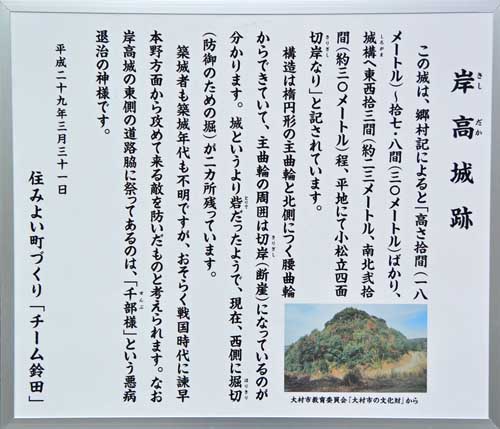 岸高城跡
きし だか
この城は、郷村記によると「高さ拾間(一八
メートル)(~拾七・八間(三〇メートル)ばかり、
城構へ東西拾三間(約二三メートル、南北弐拾
しろがま
間(約三〇メートル)程、平地にて小松立四面
切岸なり」と記されています。
きりぎし
構造は楕円形の主曲輪と北側につく腰曲輪
からできていて、主曲輪の周囲は切岸(断崖)になっているのが
きりぎし
分かります。城というより砦だったようで、現在、西側に堀切
とりで
ほりきり
(防御のための堀)が二カ所残っています。
築城者も築城年代も不明ですが、おそらく戦国時代に諫早
本野方面から攻めて来る敵を防いだものと考えられます。なお
岸高城の東側の道路脇に祭ってあるのは、「千部様」という悪病
せんぶ
退治の神様です。
平成二十九年三月三十一日
住みよい町づくり「チーム鈴田」
大村市教育委員会「大村市の文化財」から